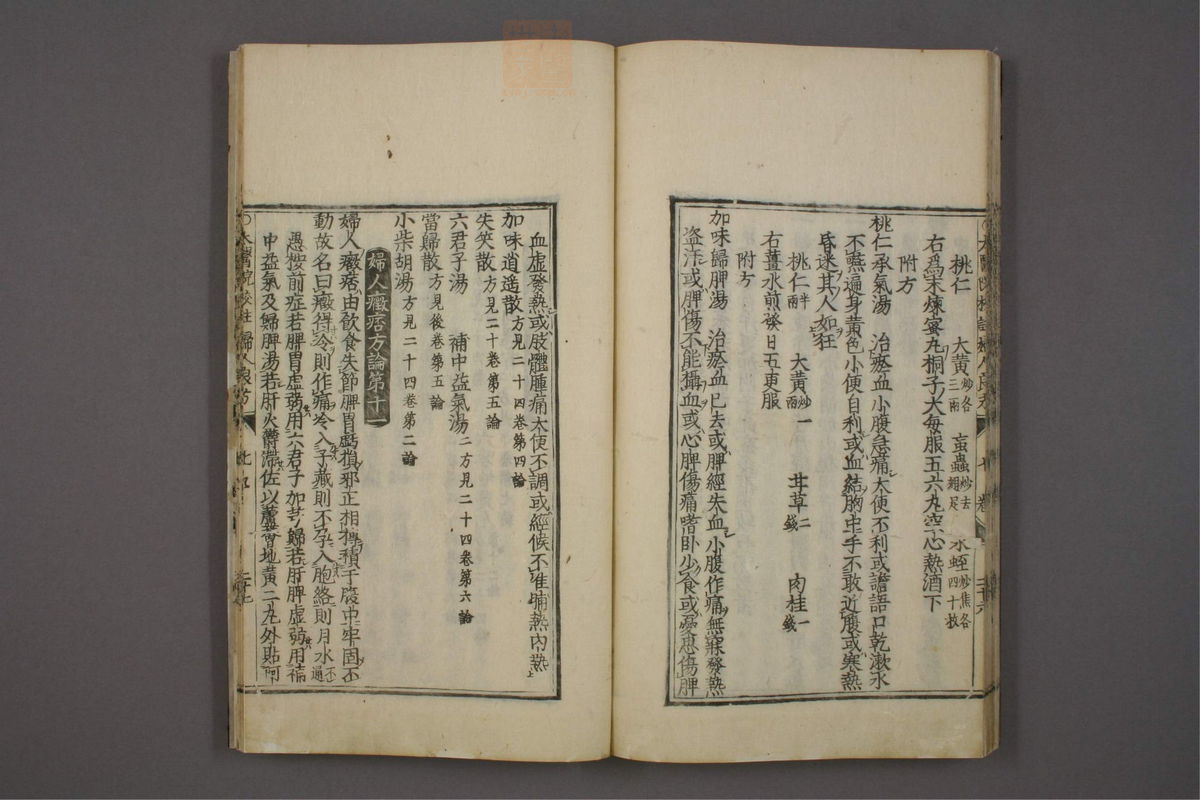 桃仁　大黃炒各三兩　䖟蟲炒去翅足　水蛭炒焦各四十枚
右爲末煉蜜丸桐子大每服五六丸空心熱酒下
附方
桃仁承氣湯　治瘀血小腹急痛大便不利或譫語口乾漱水
不嚥遍身黃色小便自利或血結胸中手不敢近腹或寒熱
昏迷其人如狂
桃仁半兩　大黃炒一兩　甘草二錢　肉桂一錢
右薑水煎發日五更服
附方
加味歸脾湯　治瘀血已去或脾經失血小腹作痛無寐發熱
盜汗或脾傷不能攝血或心脾傷痛嗜卧少食或憂思傷脾
血虛發熱或肢體腫痛大便不調或經候不准晡熱內熱
加味逍遙散方見二十四卷第四論
失笑散方見二十卷第五論
六君子湯　補中益氣湯二方見二十四卷第六論
當歸散方見後卷第五論
小柴胡湯方見二十四卷第二論
婦人癥痞方論第十一
婦人癥痞由飲食失節脾胃虧損邪正相搏積于腹中牢固不
動故名曰癥得冷則作痛冷入子藏則不孕入胞絡則月水不通
愚按前症若脾胃虛弱用六君子加芎歸若肝脾虛弱用補
中益氣及歸脾湯若肝火鬱滯佐以蘆薈地黃二丸外貼阿
太醫院校註婦人良方　七卷